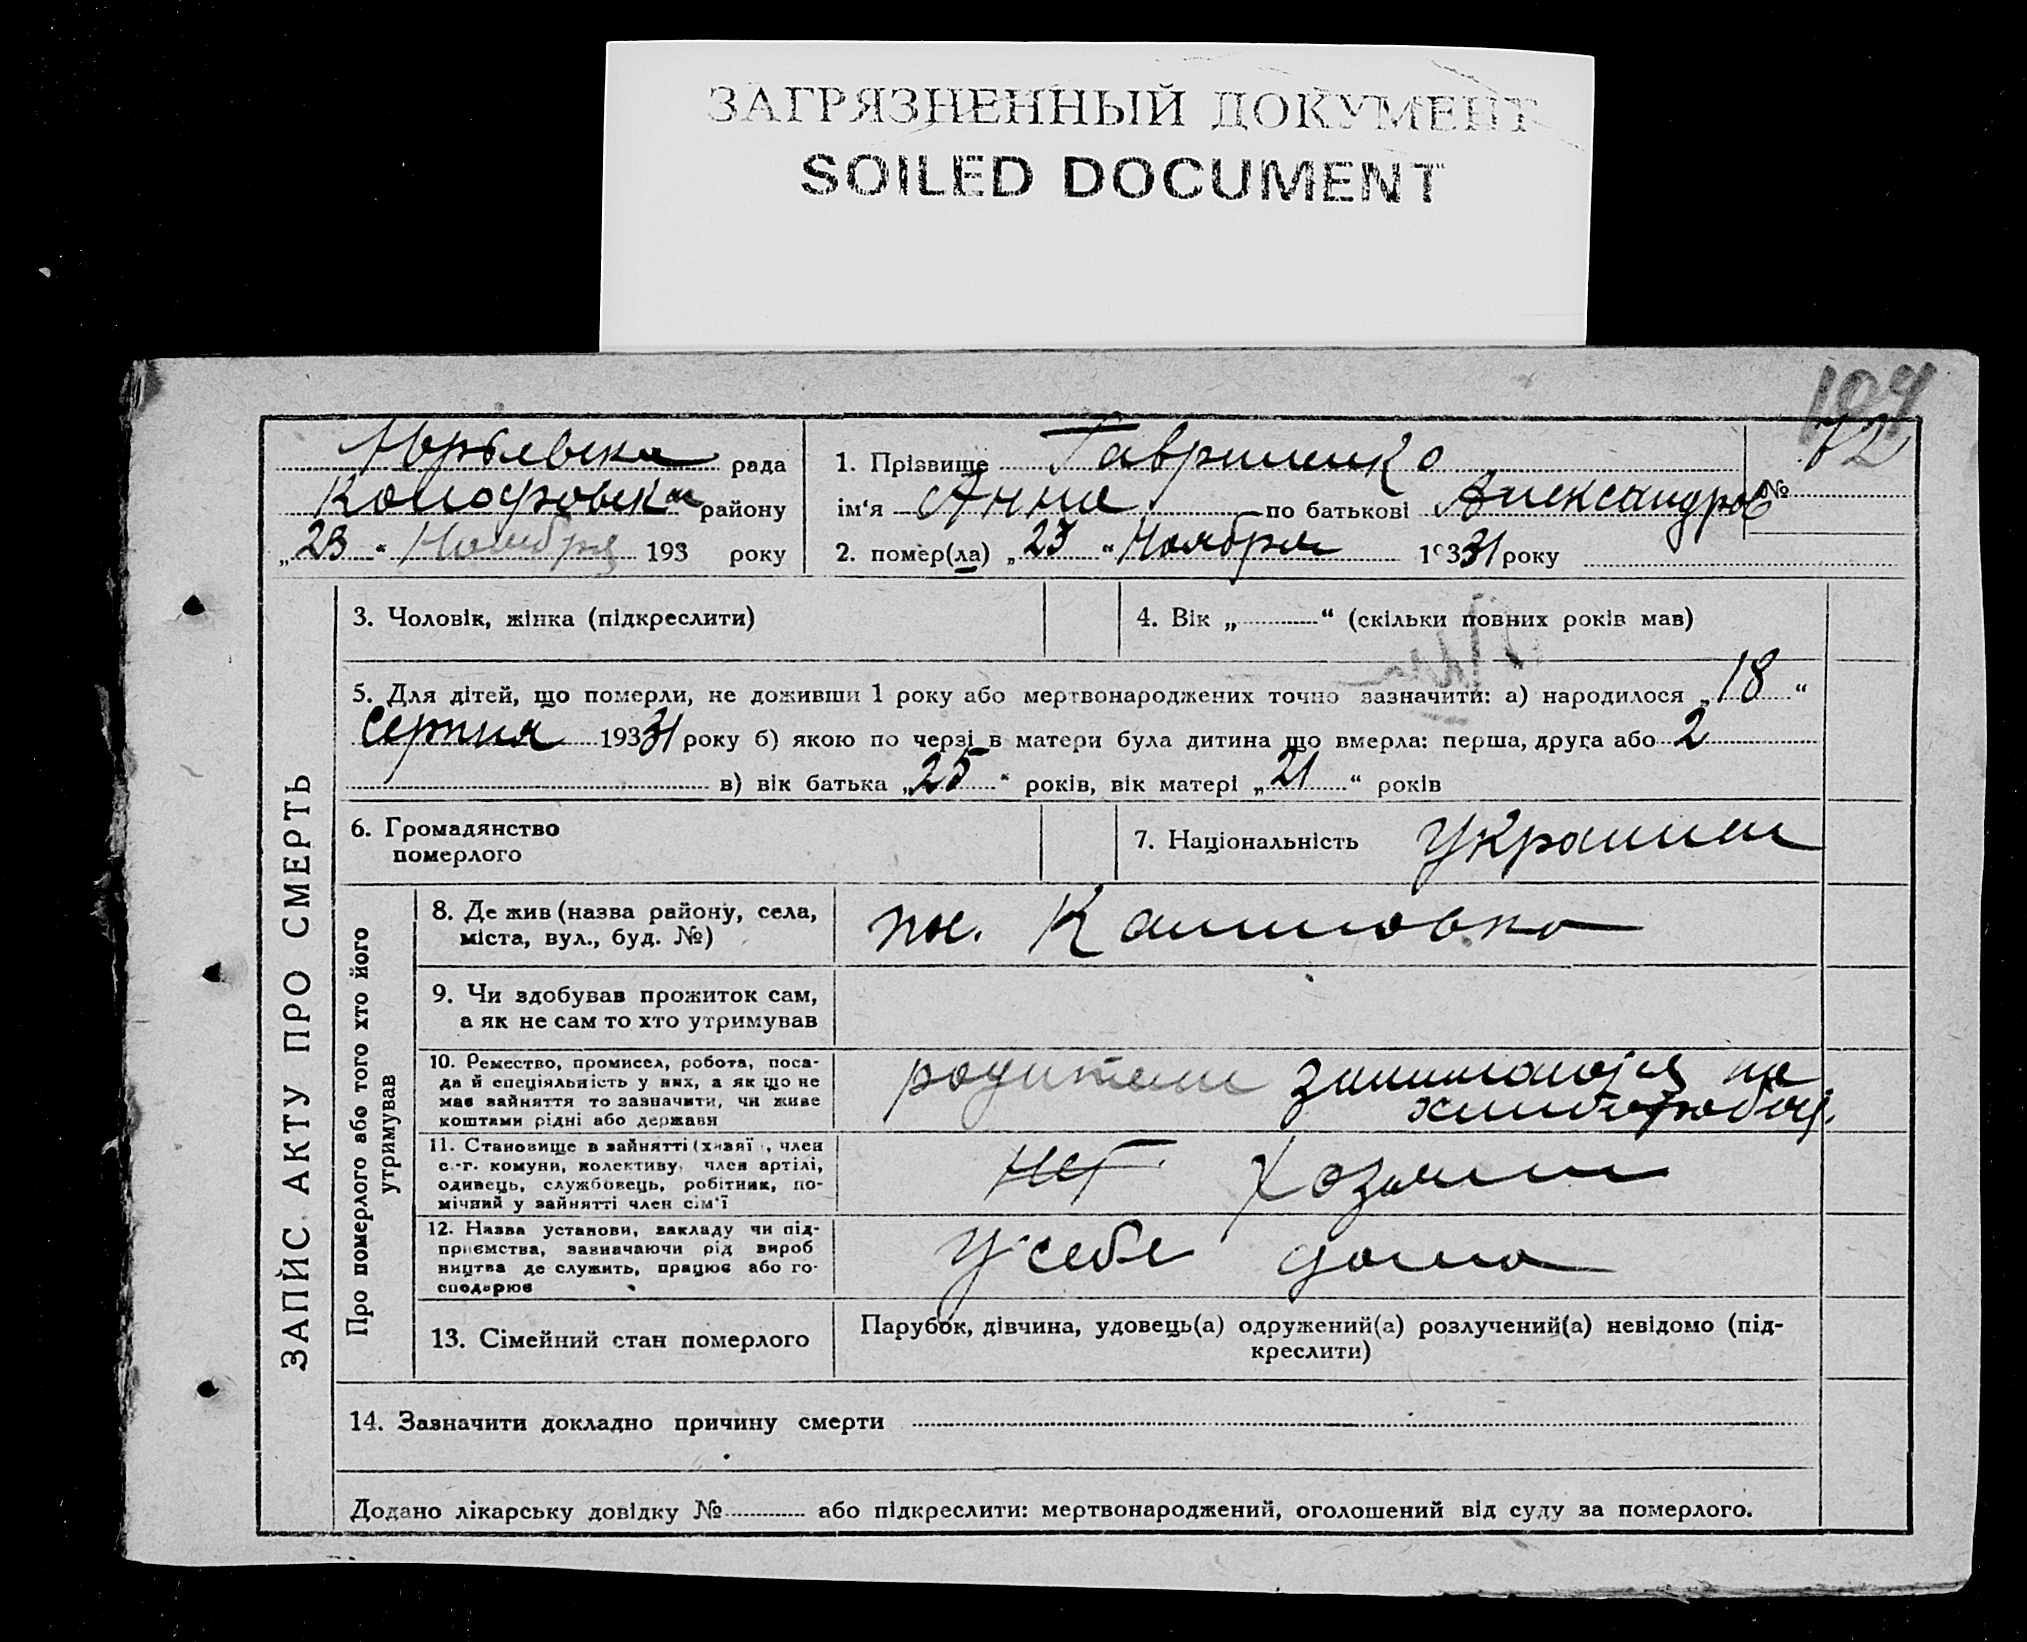 ЗАГРЯЗНЕННЫЙ ДОКУМЕНТ
SOILED DOCUMENT
104
72
рада
району
„23“ Ноября 193 року
1. Прізвище Гавриленко
№
ім‘я Анна по батькові Александров
2. помер(ла) „23“ Ноября 19331 року
ЗАПИС АКТУ ПРО СМЕРТЬ
3. Чоловік, жінка (підкреслити)
4. Вік „ “ (скільки повних років мав)
5. Для дітей, що померли, не доживши 1 року або мертвонароджених точно зазначити: а) народилося „18“
серпня 19331 року б) якою по черзі в матери була дитина що вмерла: перша, друга або 2
в) вік батька „25“ років, вік матері „21“ років
6. Громадянство
померлого
7. Національність Украинец
Про померлого або того хто його
утримував
8. Де жив (назва району, села,
міста, вул., буд. №)
9. Чи здобував прожиток сам,
а як не сам то хто утримував
10. Ремество, промисел, робота, поса-
да й спеціяльність у них, а як що не
має зайняття то зазначити, чи живе
коштами рідні або держави
родители
11. Становище в зайнятті (хазяї , член
с.-г. комуни, колективу, член артілі,
одинець, службовець, робітник, по-
мічний у зайнятті член сім‘ї
нет Хозяин
12. Назва установи, закладу чи під-
приємства, зазначаючи рід вироб
ництва де служить, працює або го-
сподарює
У себе дома
13. Сімейний стан померлого
Парубок, дівчина, удовець(а) одружений(а) розлучений(а) невідомо (під-
креслити)
14. Зазначити докладно причину смерти
Додано лікарську довідку № або підкреслити: мертвонароджений, оголошений від суду за померлого.